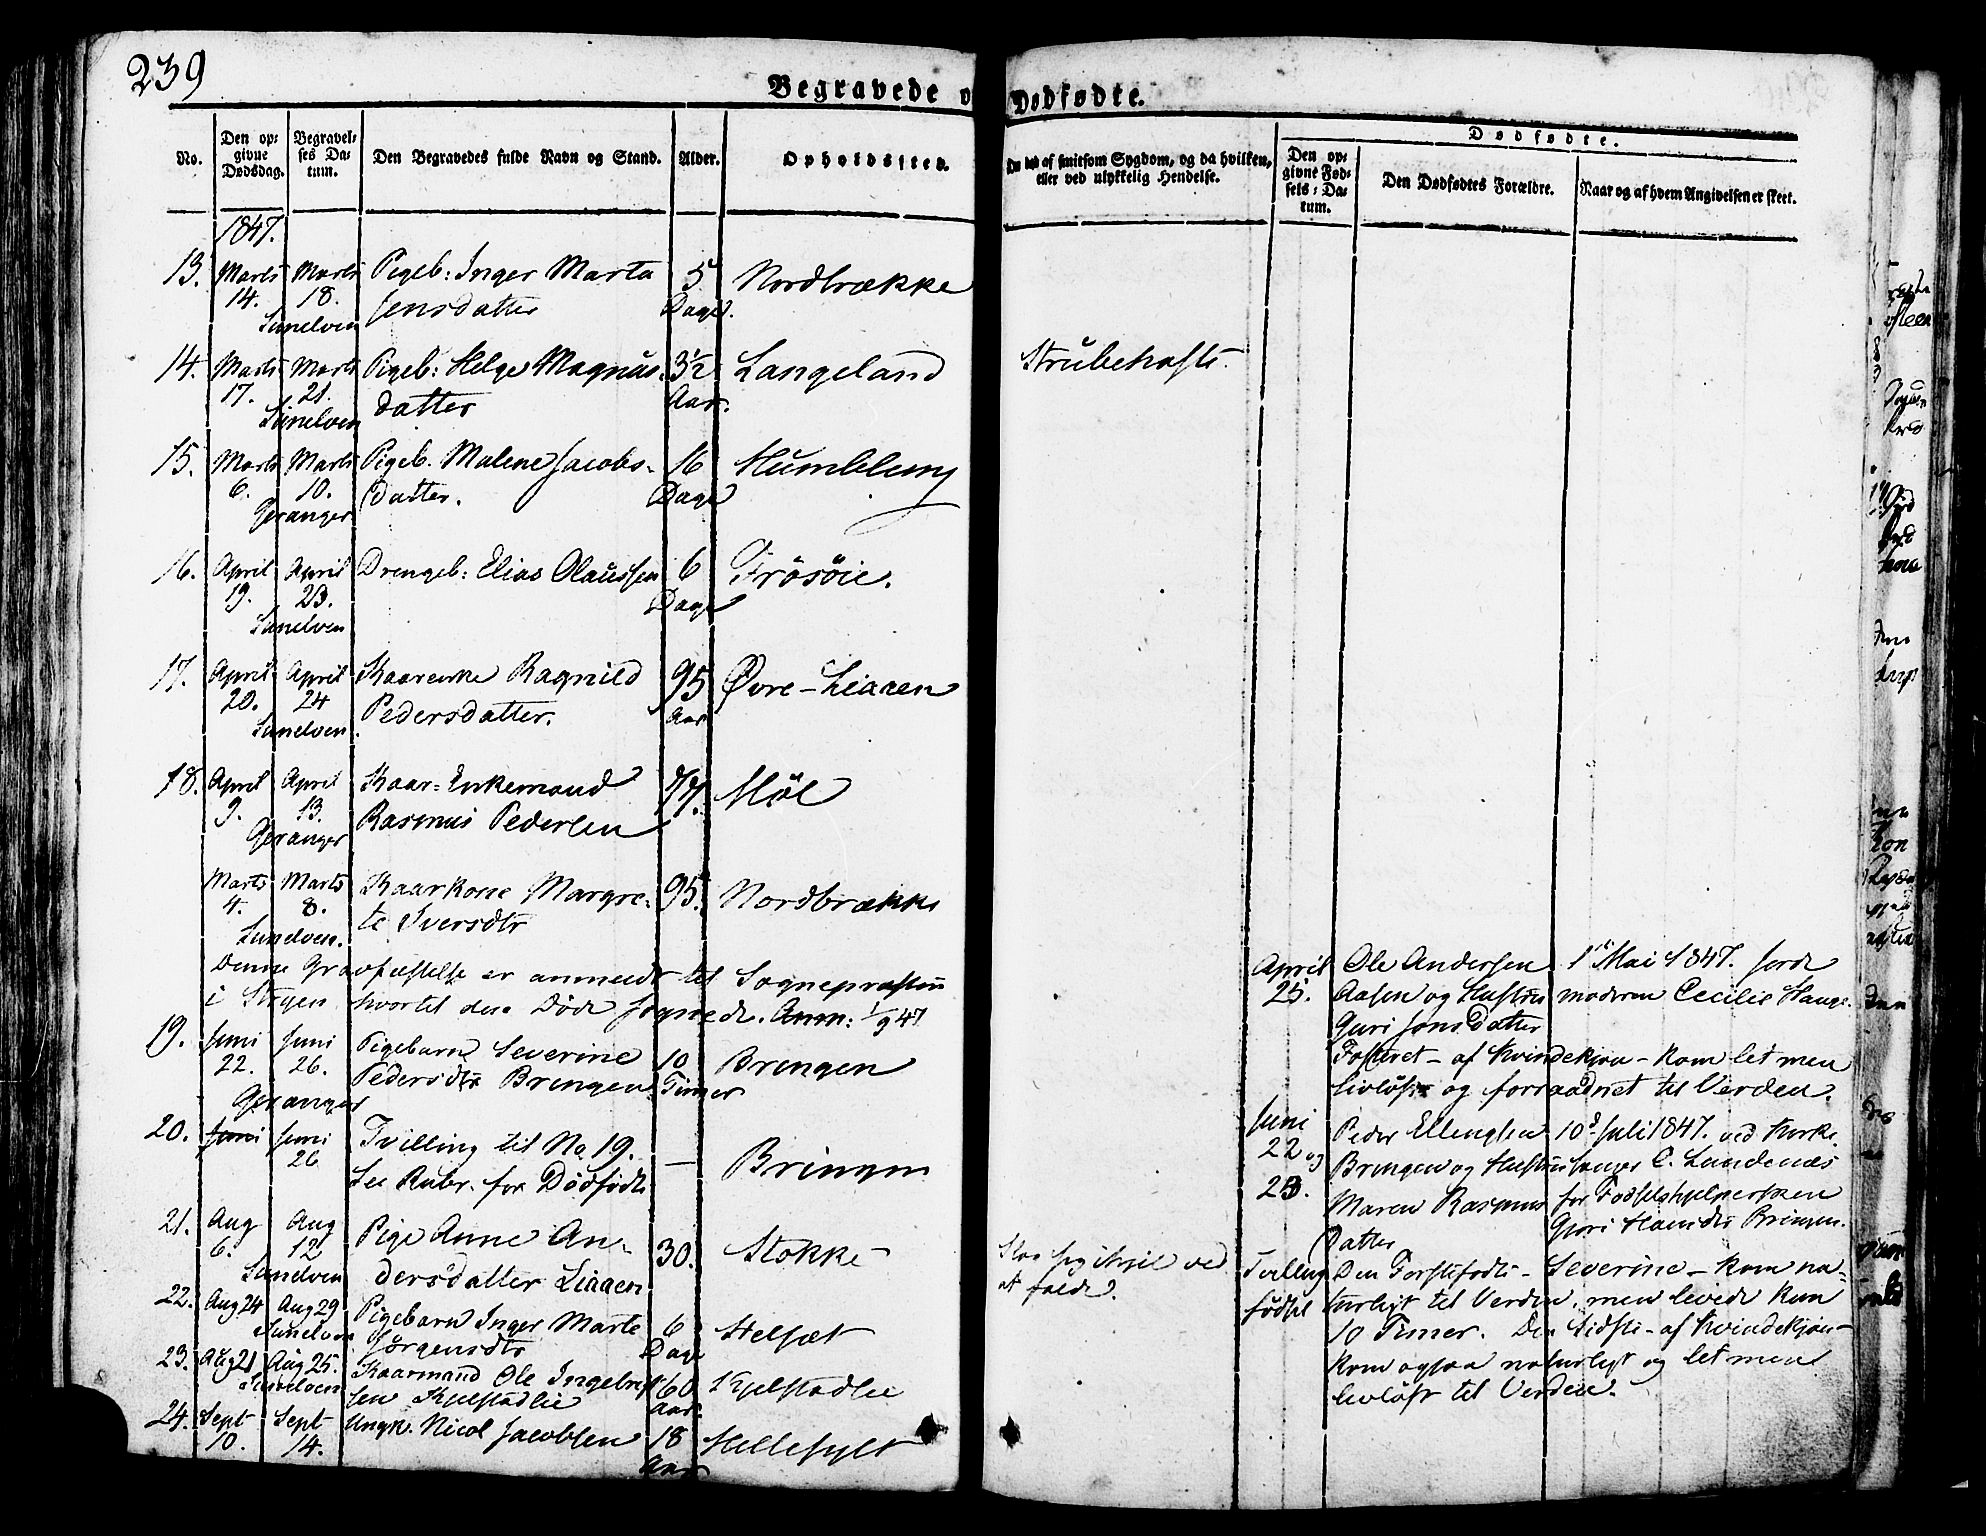 239
Begravede o
Dødfødte.
No.
Den op-
givne
Dødsdag.
Begravel-
ses Da-
tum.
Den Begravedes fulde Navn og Stand.
Alder.
Opholdssted.
af smitsom Sygdom, og da hvilken,
eller ved ulykkelig Hendelse.
Dødfødte.
Den op-
givne Fød-
sels-Da-
tum.
Den Dødfødtes Forældre.
Naar og af hvem Angivelsen er skeet.
1847.
13. Marts Marts Pigeb: Inger Marta 5 Nordbrække
14. 18. Jensdatter Dage.
Sunelven
14. Marts Marts Pigeb: Helge Magnus- 3½ Langeland Strubehoste.
17. 21. datter Aar.
Sunelven
15. Marts Marts Pigeb. Malene Jacobs- 16 Humblung
6. 10. datter. Dage
Geranger
16. April April Drengeb: Elias Olaussen 6 Frösöie.
19. 23. Dage
Sunelven
17. April April Kaarenke Ragnild 95 Øvre-Liaaen
20. 24 Pedersdatter. Aar
Sunelven.
18. April April Kaar-Enkemand 77. Möl
9. 13. Rasmus Pedersen
Geranger
Marts Marts Kaarkone Margre- 95. Nordbrække
4. 8. te Iversdtr
Sunelven.
Denne Gravfæstelse er anmeldt til Sognepræsten
i Stryen hvortil den Döde sognede. Anm: 1/9 47
19. Juni Juni Pigebarn Severine 10 Bringen
22. 26. Pedersdtr Bringen Timer
Geranger
20. Juni Juni Tvilling til No 19. — Bringen
26 See Rubr. for Dödfödte
21. Aug Aug Pige Anne An- 30. Stokke
6. 12 dersdatter Liaaen
Sunelven
22. Aug 24 Aug 29 Pigebarn Inger Marte 6 Helsæt
Sunelven Jörgensdtr Dage
23. Aug 21 Aug 25. Kaarmand Ole Ingebrigt 60 Kjelstadlie
Sunelven sen Kjelstadlie Aar
24. Sept Sept Ungk. Nicol Jacobsen 18 Hellesylt
10. 14. Aar
April Ole Andersen 1ste Mai 1847. Jord-
25. Aasen og Hustru moderen Cecilie Hauge.
Guri Jonsdatter
Fosteret - af Kvindekjøn - kom let men
livlöst og forraadnet til Verden.
Juni Peder Ellingsen 10d Juli 1847. ved Kirke-
22 og Bringen og Hustru sanger C. Lundenæs
23. Maren Rasmus for Fødselshjelpersken
Datter Guri Hansdtr Bringen.
Slog sig ihjel ved
at falde.
Tvilling Den Förstefödte - Severine - kom na-
födsel turligt til Verden, men levede kun
10 Timer. Den Sidste - af Kvindekjön -
kom ogsaa naturligt og let men
livlöst til Verden.